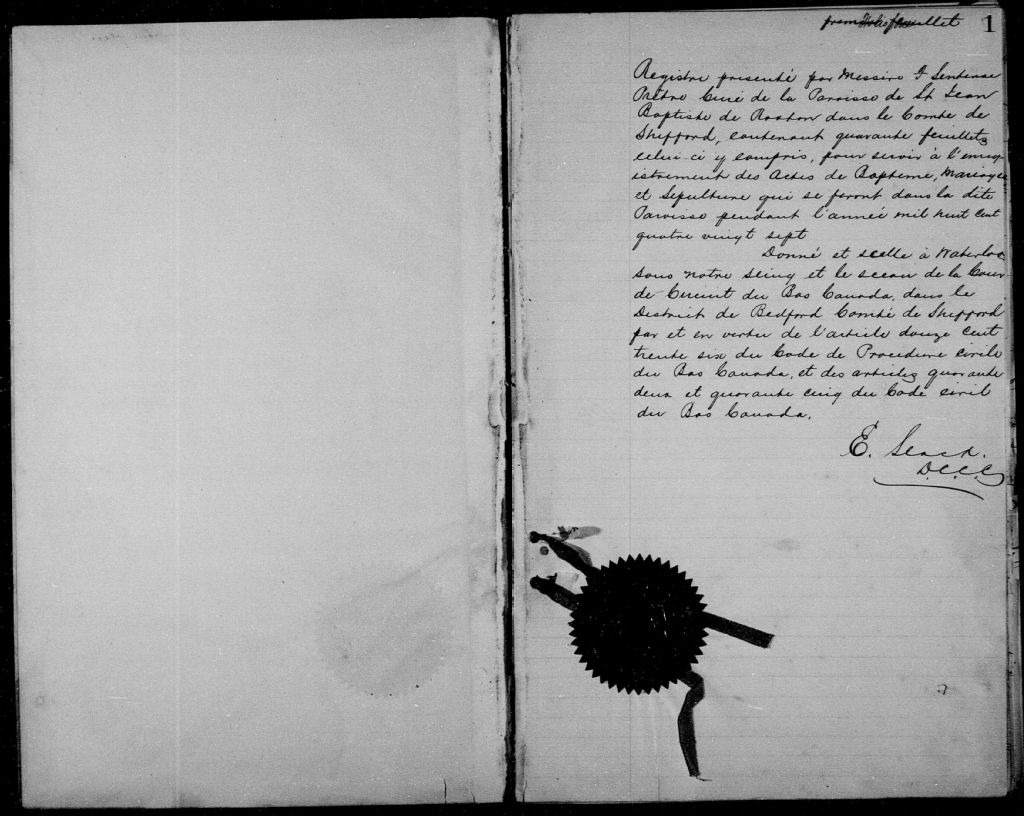 premier feuillet 1
Registre presenté par Messire J Sentenne
Prêtre Curé de la Paroisse de St Jean
Baptiste de Roxton dans le Comté de
Shefford, contenant quarante feuillets
celui-ci y compris, pour servir à l'enreg-
istrement des Actes de Bapteme, Mariage
et Sepulture qui se feront dans la dite
Paroisse pendant l'année mil huit cent
quatre vingt sept
Donné et scelle à Waterloo
sous notre seing et le sceau de la Cour
de Circuit du Bas Canada, dans le
District de Bedford Comté de Shefford
par et en vertu de l'article douze cent
trente six du Code de Procedure civile
du Bas Canada, et des articles quarante
deux et quarante cinq du Code civil
du Bas Canada.
E.
D.C.C.C